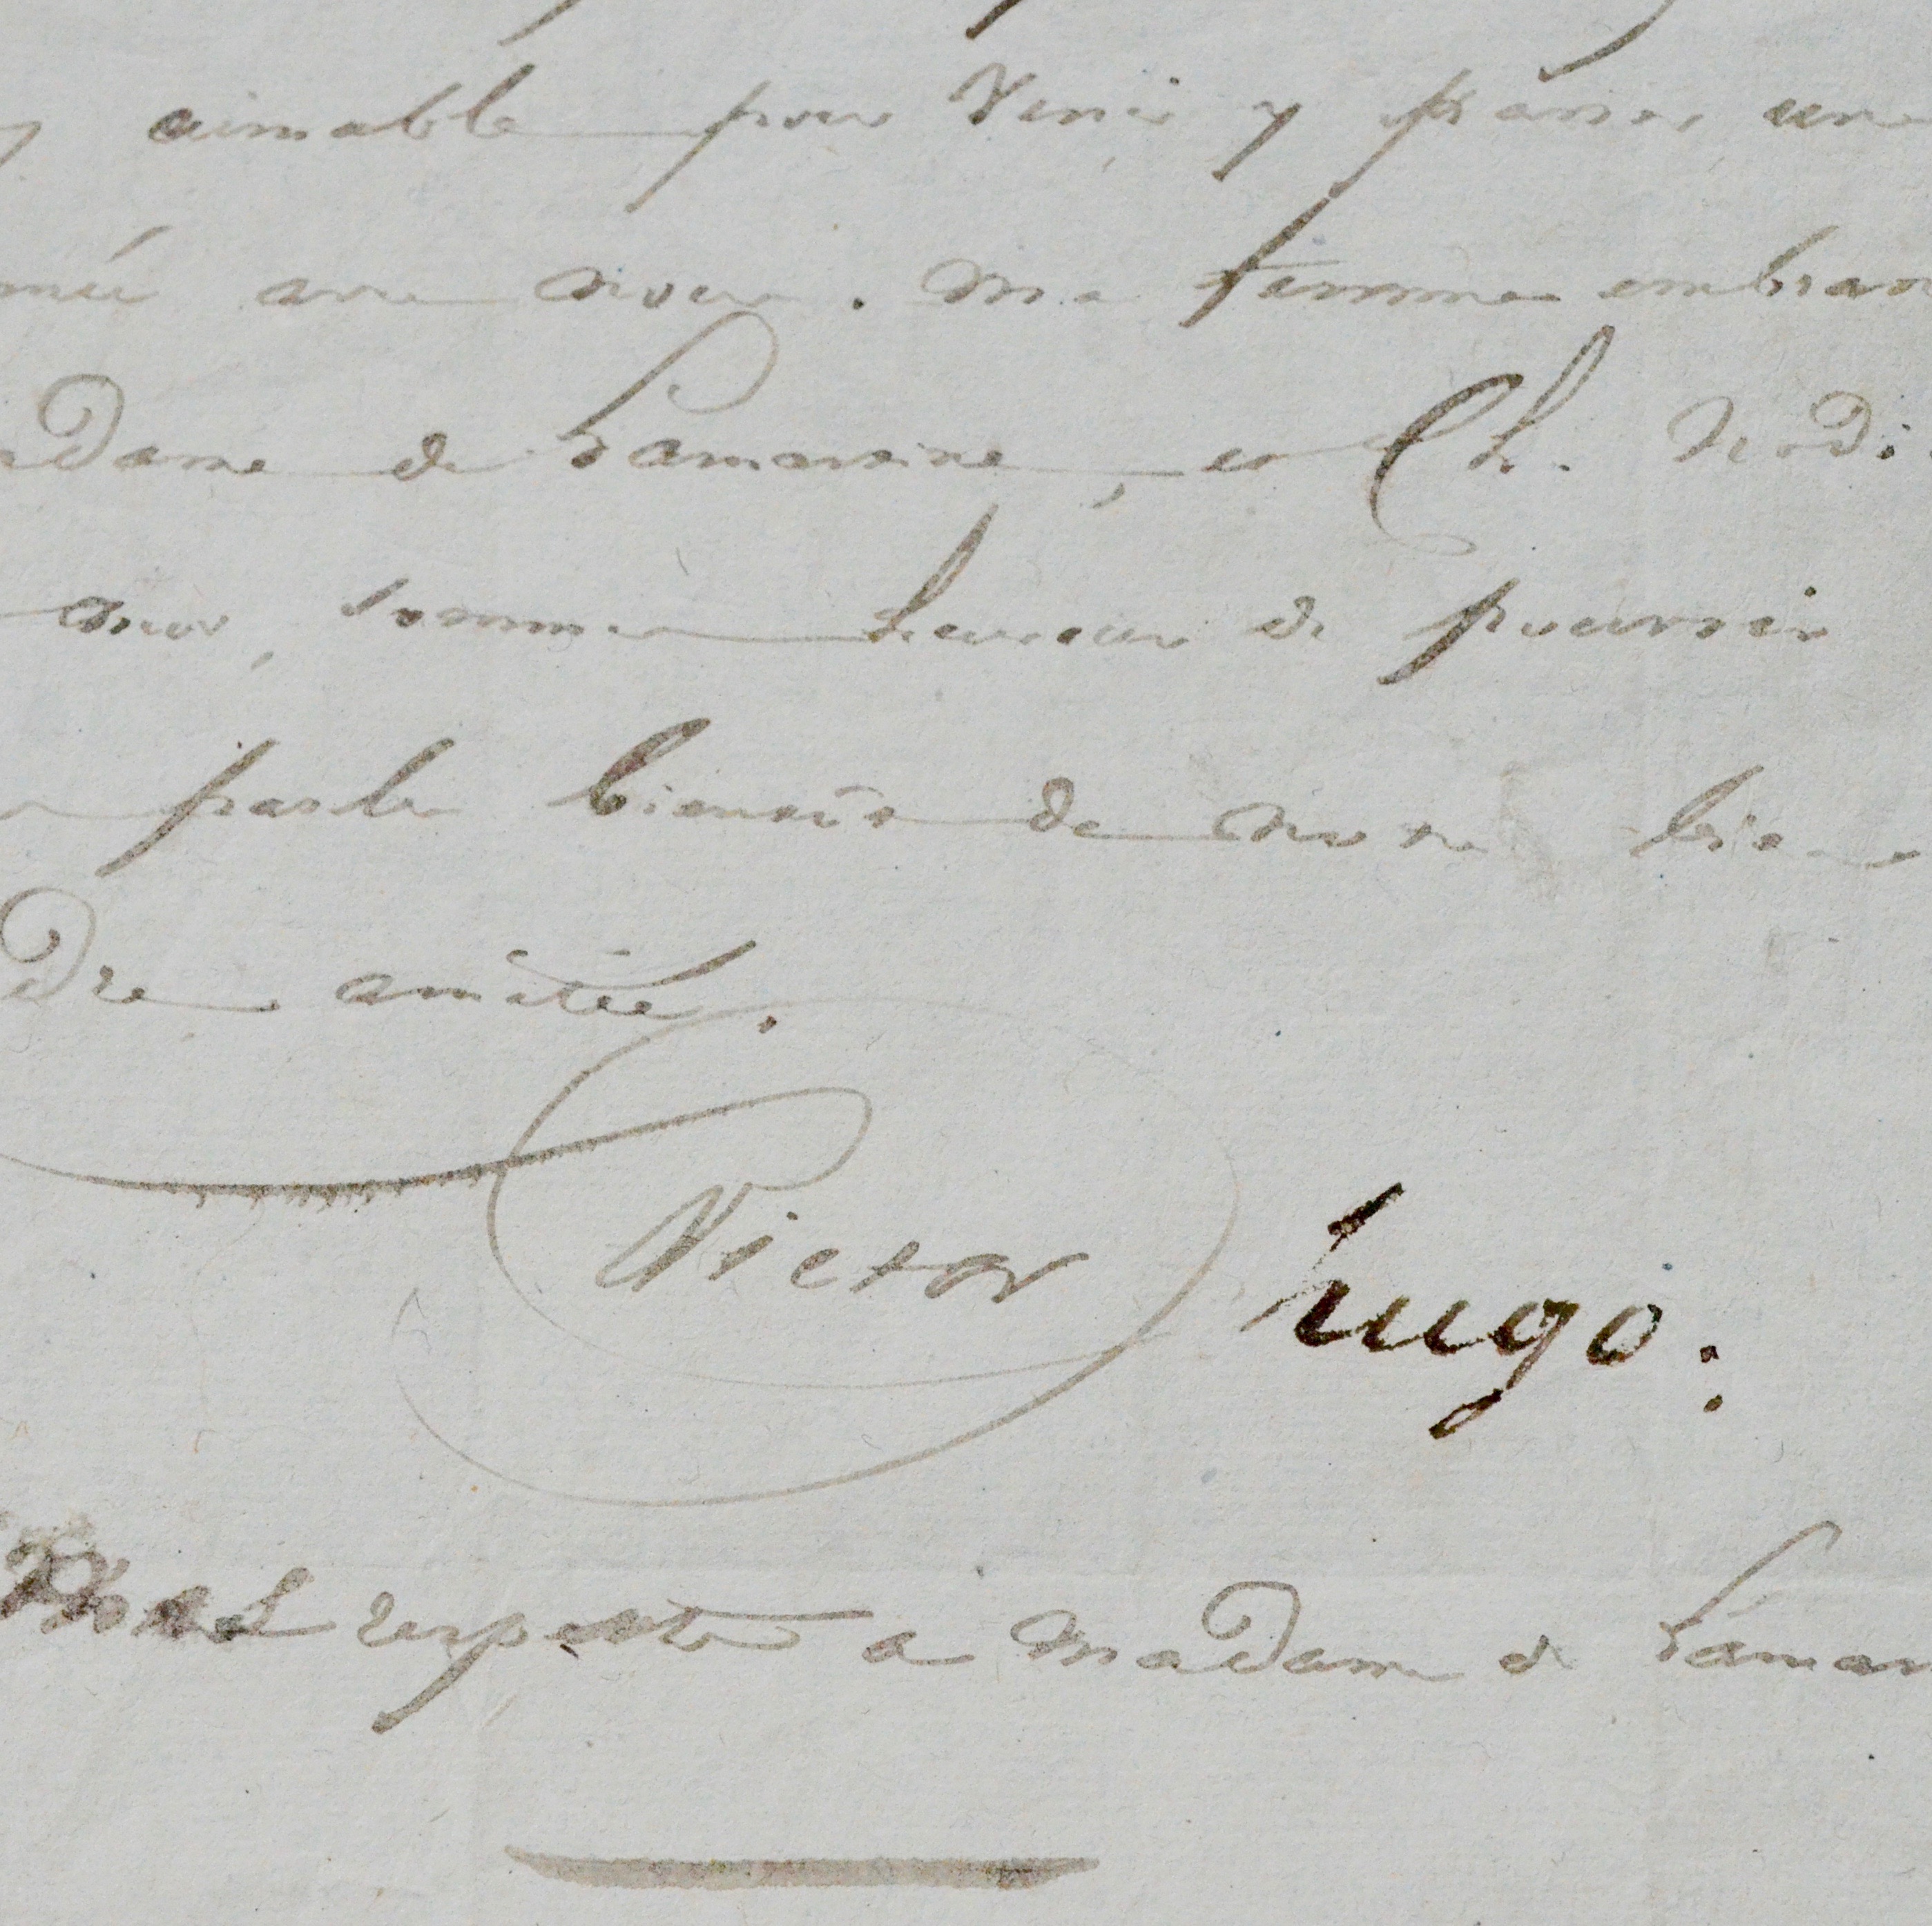 aimable pour venir y passer une
née avec nous. Ma femme embrass
adame de Lamartine, et Ch. Nodi
nous sommes heureux de pouvoir
parler bientôt de notre bien
dre amitié.
Victor hugo.
respects a madame de Lamar